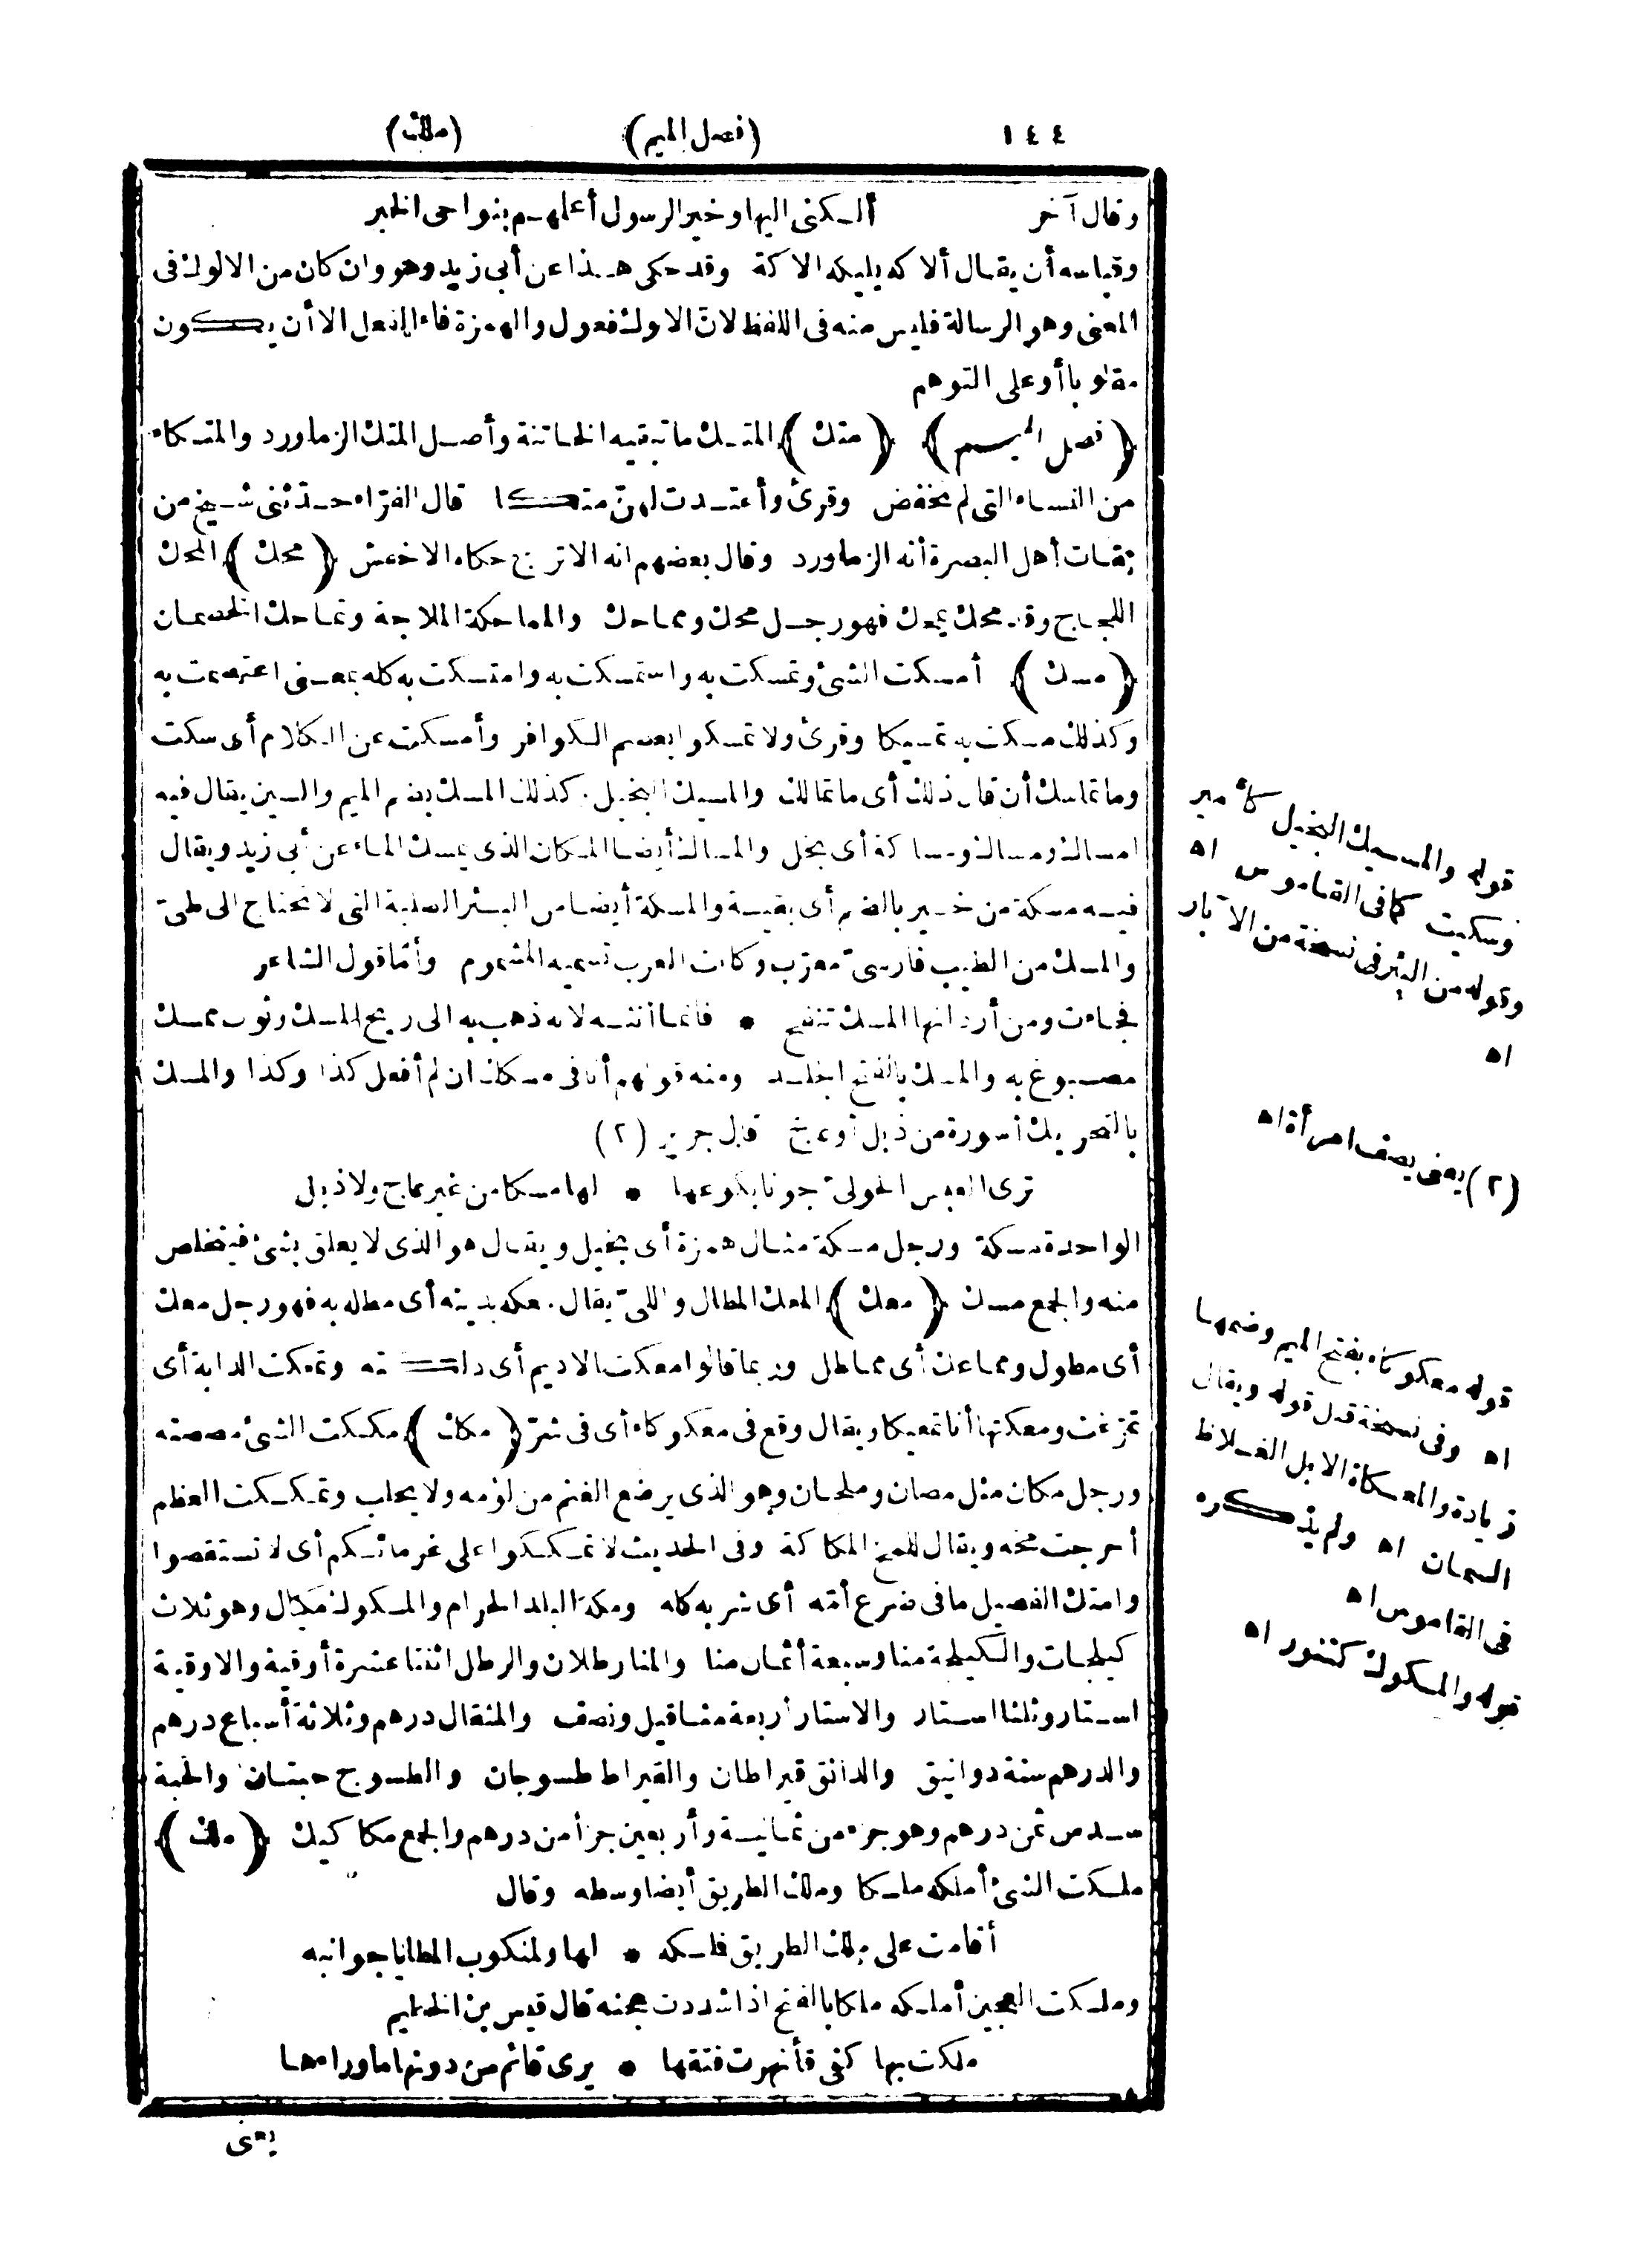 ١٤٤ (فصل الميم) (ملك)
وقال آخر ألكنى اليها وخير الرسول أعلهم بنواحى الخبر
وقياسه أن يقال ألاكه يليكه الاكة وقد حكى هذا عن أبى زيد وهو وان كان من الالوك فى
المعنى وهو الرسالة فليس منه فى اللفظ لانّ الالوك فعول والهمزة فاء الفعل الا أن يكون
مقلوبا أو على التوهم
(فصل الميم) (متك) المتك ما تبقيه الخاتنة وأصل المتك الزماورد والمتكاء
من النساء التى لم تخفض وقرئ وأعتدت لهنّ متكا قال الفرّاء حدّثنى شيخ من
ثقات أهل البصرة أنه الزماورد وقال بعضهم انه الاترج حكاه الاخفش (محك) المحك
اللجاج وقد محك يمحك فهو رجل محك ومماحك والمماحكة الملاجة وتماحك الخصمان
(مسك) أمسكت الشئ وتمسكت به واستمسكت به وامتسكت به كله بمعنى اعتصمت به
وكذلك مسكت به تمسيكا وقرئ ولا تمسكوا بعصم الكوافر وأمسكت عن الكلام أى سكت
وما تماسك أن قال ذلك أى ما تمالك والمسيك البخيل وكذلك المسك بضم الميم والسين يقال فيه
امساك ومساك ومساكة أى بخل والمساك أيضا المكان الذى يمسك الماء عن أبى زيد ويقال
فيه مسكة من خير بالضم أى بقية والمسكة أيضا من البئر الصلبة التى لا تحتاج الى طىّ
والمسك من الطيب فارسىّ معرّب وكانت العرب تسميه المشموم وأمّا قول الشاعر
فجاءت ومن أردانها المسك تنفح * فانما أنثه لانه ذهب به الى ريح المسك وثوب ممسك
مصبوغ به والمسك بالفتح الجلد ومنه قولهم أنا فى مسكك ان لم أفعل كذا وكذا والمسك
بالتحريك أسورة من ذبل أو عاج قال جرير (٢)
ترى العبس الحولىّ جونا بكوعها * لها مسكا من غير عاج ولا ذبل
الواحدة مسكة ورجل مسكة مثال همزة أى بخيل ويقال هو الذى لا يعلق بشئ فيتخلص
منه والجمع مسك (معك) المعك المطال واللىّ يقال معكه بدينه أى مطله به فهو رجل معك
أى مطول ومماعك أى مماطل وربما قالوا معكت الاديم أى دلكته وتمعكت الدابة أى
تمرّغت ومعكتها أنا تمعيكا ويقال وقع فى معكوكاء أى فى شرّ (مكك) مككت الشئ مصصته
ورجل مكان مثل مصان وملجان وهو الذى يرضع الغنم من لؤمه ولا يحلب وتمككت العظم
أخرجت مخه ويقال للمخ المكاكة وفى الحديث لا تمككوا على غرمائكم أى لا تستقصوا
وامتك الفصيل ما فى ضرع أمّه أى شربه كله ومكة البلد الحرام والمكوك مكيال وهو ثلاث
كيلجات والكيلجة منا وسبعة أثمان منا والمنا رطلان والرطل اثنتا عشرة أوقية والاوقية
استار وثلثا استار والاستار أربعة مثاقيل ونصف والمثقال درهم وثلاثة أسباع درهم
والدرهم ستة دوانيق والدانق قيراطان والقيراط طسوجان والطسوج حبتان والحبة
سدس ثمن درهم وهو جزء من ثمانية وأربعين جزأ من درهم والجمع مكاكيك (ملك)
ملكت الشئ أملكه ملكا وملك الطريق أيضا وسطه وقال
أقامت على ملك الطريق فملكه * لها ولمنكوب المطايا جوانبه
وملكت العجين أملكه ملكا بالفتح اذا شددت عجنه قال قيس بن الخطيم
ملكت بها كفى فأنهرت فتقها * يرى قائم من دونها ما وراءها
يعنى
قوله والمسيك البخيل كأمير
وسكيت كما فى القاموس اه
وقوله من البئر فى نسخة من الآبار
اه
(٢) يعنى يصف امرأة اه
قوله معكوكاء بفتح الميم وضمها
اه وفى نسخة قبل قوله ويقال
زيادة والمعكاة الابل الغلاظ
السمان اه ولم يذكره
فى القاموس اه
قوله والمكوك كتنور اه